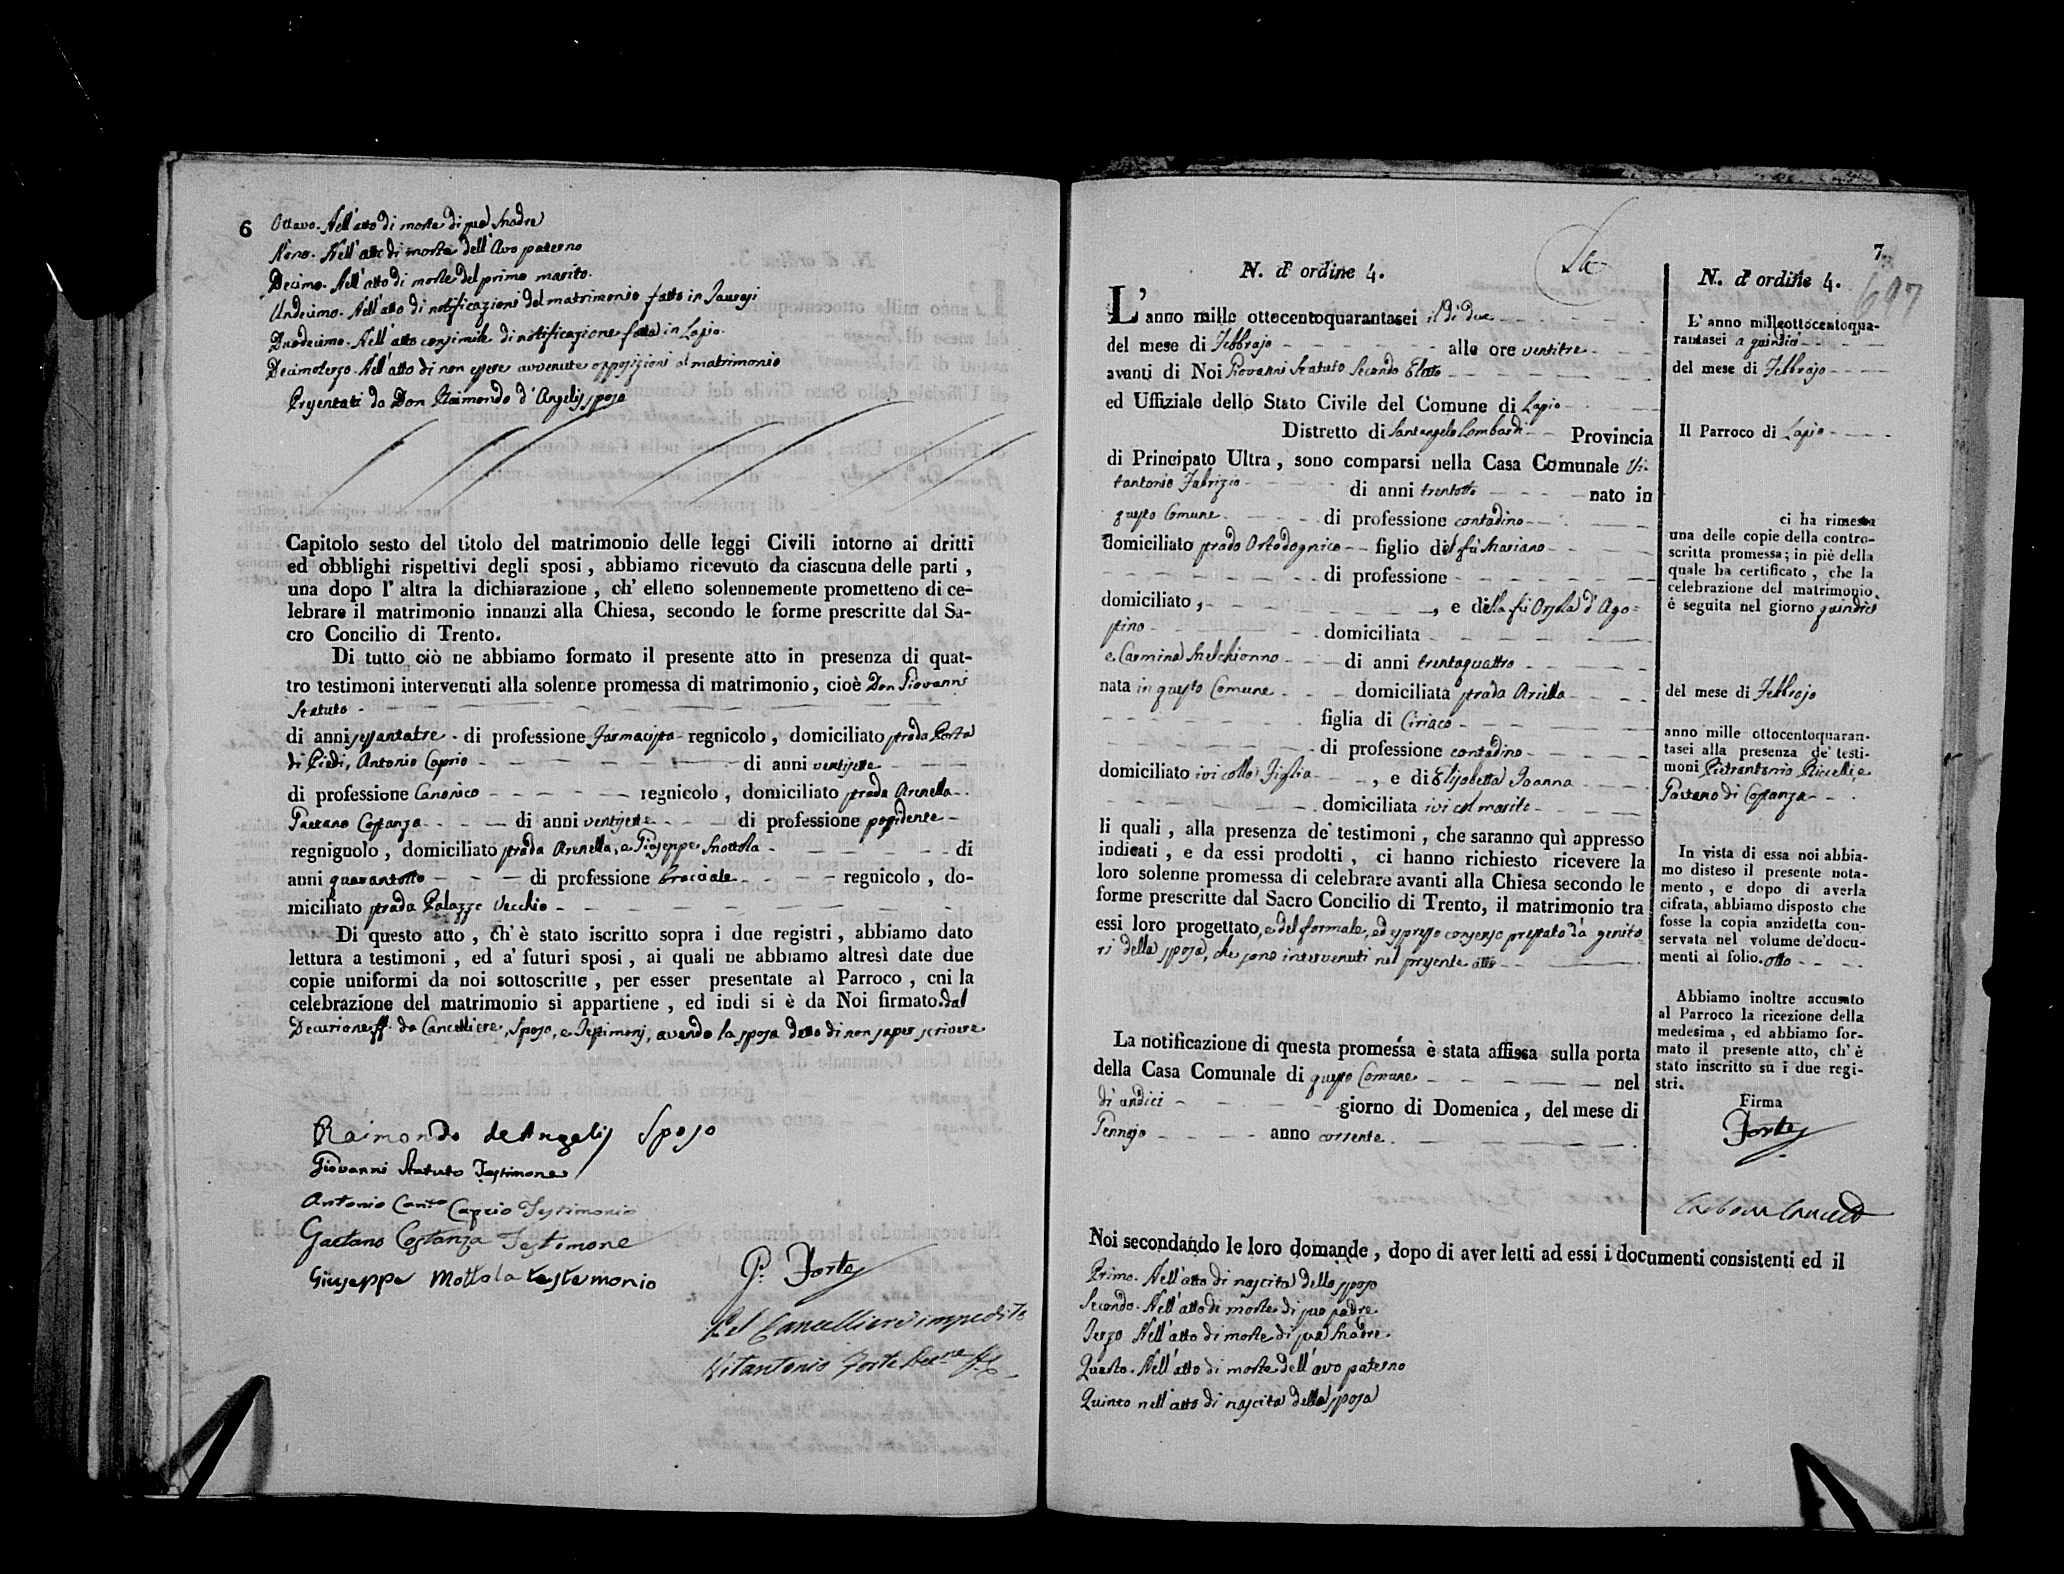 6
Ottavo. Nell'atto di morte di sua Madre
Nono. Nell'atto di morte dell'Avo paterno
Decimo. Nell'atto di morte del primo marito.
Undecimo. Nell'atto di notificazioni del matrimonio fatto in Taurasi
Duodecimo. Nell'atto consimile di notificazione fatta in Lapio.
Decimoterzo. Nell'atto di non essere avvenute opposizioni al matrimonio
Presentati da Don Raimondo d'Angelis sposo
Capitolo sesto del titolo del matrimonio delle leggi Civili intorno ai dritti
ed obblighi rispettivi degli sposi, abbiamo ricevuto da ciascuna delle parti,
una dopo l'altra la dichiarazione, ch'elleno solennemente promettono di ce-
lebrare il matrimonio innanzi alla Chiesa, secondo le forme prescritte dal Sa-
cro Concilio di Trento.
Di tutto ciò ne abbiamo formato il presente atto in presenza di quat-
tro testimoni intervenuti alla solenne promessa di matrimonio, cioè Don Giovanni
Statuto
di anni sessantatre di professione Farmacista regnicolo, domiciliato strada Porta
di Piedi, Antonio Caprio di anni ventisette
di professione Canonico regnicolo, domiciliato strada Arenella
Gaetano Costanza di anni ventisette di professione possidente
regnignolo, domiciliato strada Arenella, e Giuseppe Mottola di
anni quarantotto di professione bracciale regnicolo, do-
miciliato strada Palazzo Vecchio
Di questo atto, ch'è stato iscritto sopra i due registri, abbiamo dato
lettura a testimoni, ed a' futuri sposi, ai quali ne abbiamo altresì date due
copie uniformi da noi sottoscritte, per esser presentate al Parroco, cui la
celebrazione del matrimonio si appartiene, ed indi si è da Noi firmato. dal
Decurione ff. da Cancelliere, Sposo, e Testimonj, avendo la sposa detto di non saper scrivere
Raimondo deAngelis Sposo
Giovanni Statuto Testimone
Antonio Can.co Caprio Testimonio
Gaetano Costanza Testimone
Giuseppe Mottola testemonio
G. Forte
Pel Cancelliere impedito
Vitantonio Forte
7
697
N. d'ordine 4.
L'anno mille ottocentoquarantasei il dì due
del mese di Febbrajo alle ore ventitre
avanti di Noi Giovanni Statuto Secondo Eletto
ed Uffiziale dello Stato Civile del Comune di Lapio
Distretto di Santangelo Lombardi Provincia
di Principato Ultra, sono comparsi nella Casa Comunale Vi-
tantonio Fabrizio di anni trentotto nato in
questo Comune di professione contadino
domiciliato strada Ortodognico figlio del fù Mariano
di professione
domiciliato, , e della fù Orsola d'Ago=
stino domiciliata
e Carmina Melchionno di anni trentaquattro
nata in questo Comune domiciliata strada Ariella
figlia di Ciriaco
di professione contadino
domiciliato ivi colla Figlia , e di Elisabetta Ioanna
domiciliata ivi col marito
li quali, alla presenza de' testimoni, che saranno quì appresso
indicati, e da essi prodotti, ci hanno richiesto ricevere la
loro solenne promessa di celebrare avanti alla Chiesa secondo le
forme prescritte dal Sacro Concilio di Trento, il matrimonio tra
essi loro progettato, e del formale, ed espresso consenso prestato dà genito-
ri della sposa, che sono intervenuti nel presente atto
La notificazione di questa promessa è stata affissa sulla porta
della Casa Comunale di questo Comune nel
dì undici giorno di Domenica, del mese di
Gennajo anno corrente
N. d'ordine 4.
L'anno milleottocentoqua-
rantasei a quindici
del mese di Febbrajo
Il Parroco di Lapio
ci ha rimessa
una delle copie della contro-
scritta promessa; in piè della
quale ha certificato, che la
celebrazione del matrimonio
è seguita nel giorno quindici
del mese di Febbrajo
anno mille ottocentoquaran-
tasei alla presenza de' testi-
moni Pietrantonio Riccelli, e
Gaetano di Costanza
In vista di essa noi abbia-
mo disteso il presente nota-
mento, e dopo di averla
cifrata, abbiamo disposto che
fosse la copia anzidetta con-
servata nel volume de' docu-
menti al folio. otto
Abbiamo inoltre accusato
al Parroco la ricezione della
medesima, ed abbiamo for-
mato il presente atto, ch'è
stato inscritto su i due regi-
stri.
Firma
Forte
Noi secondando le loro domande, dopo di aver letti ad essi i documenti consistenti ed il
Primo. Nell'atto di nascita dello sposo
Secondo. Nell'atto di morte di suo padre
Terzo Nell'atto di morte di sua Madre
Quarto. Nell'atto di morte dell'avo paterno
Quinto nell'atto di nascita della sposa